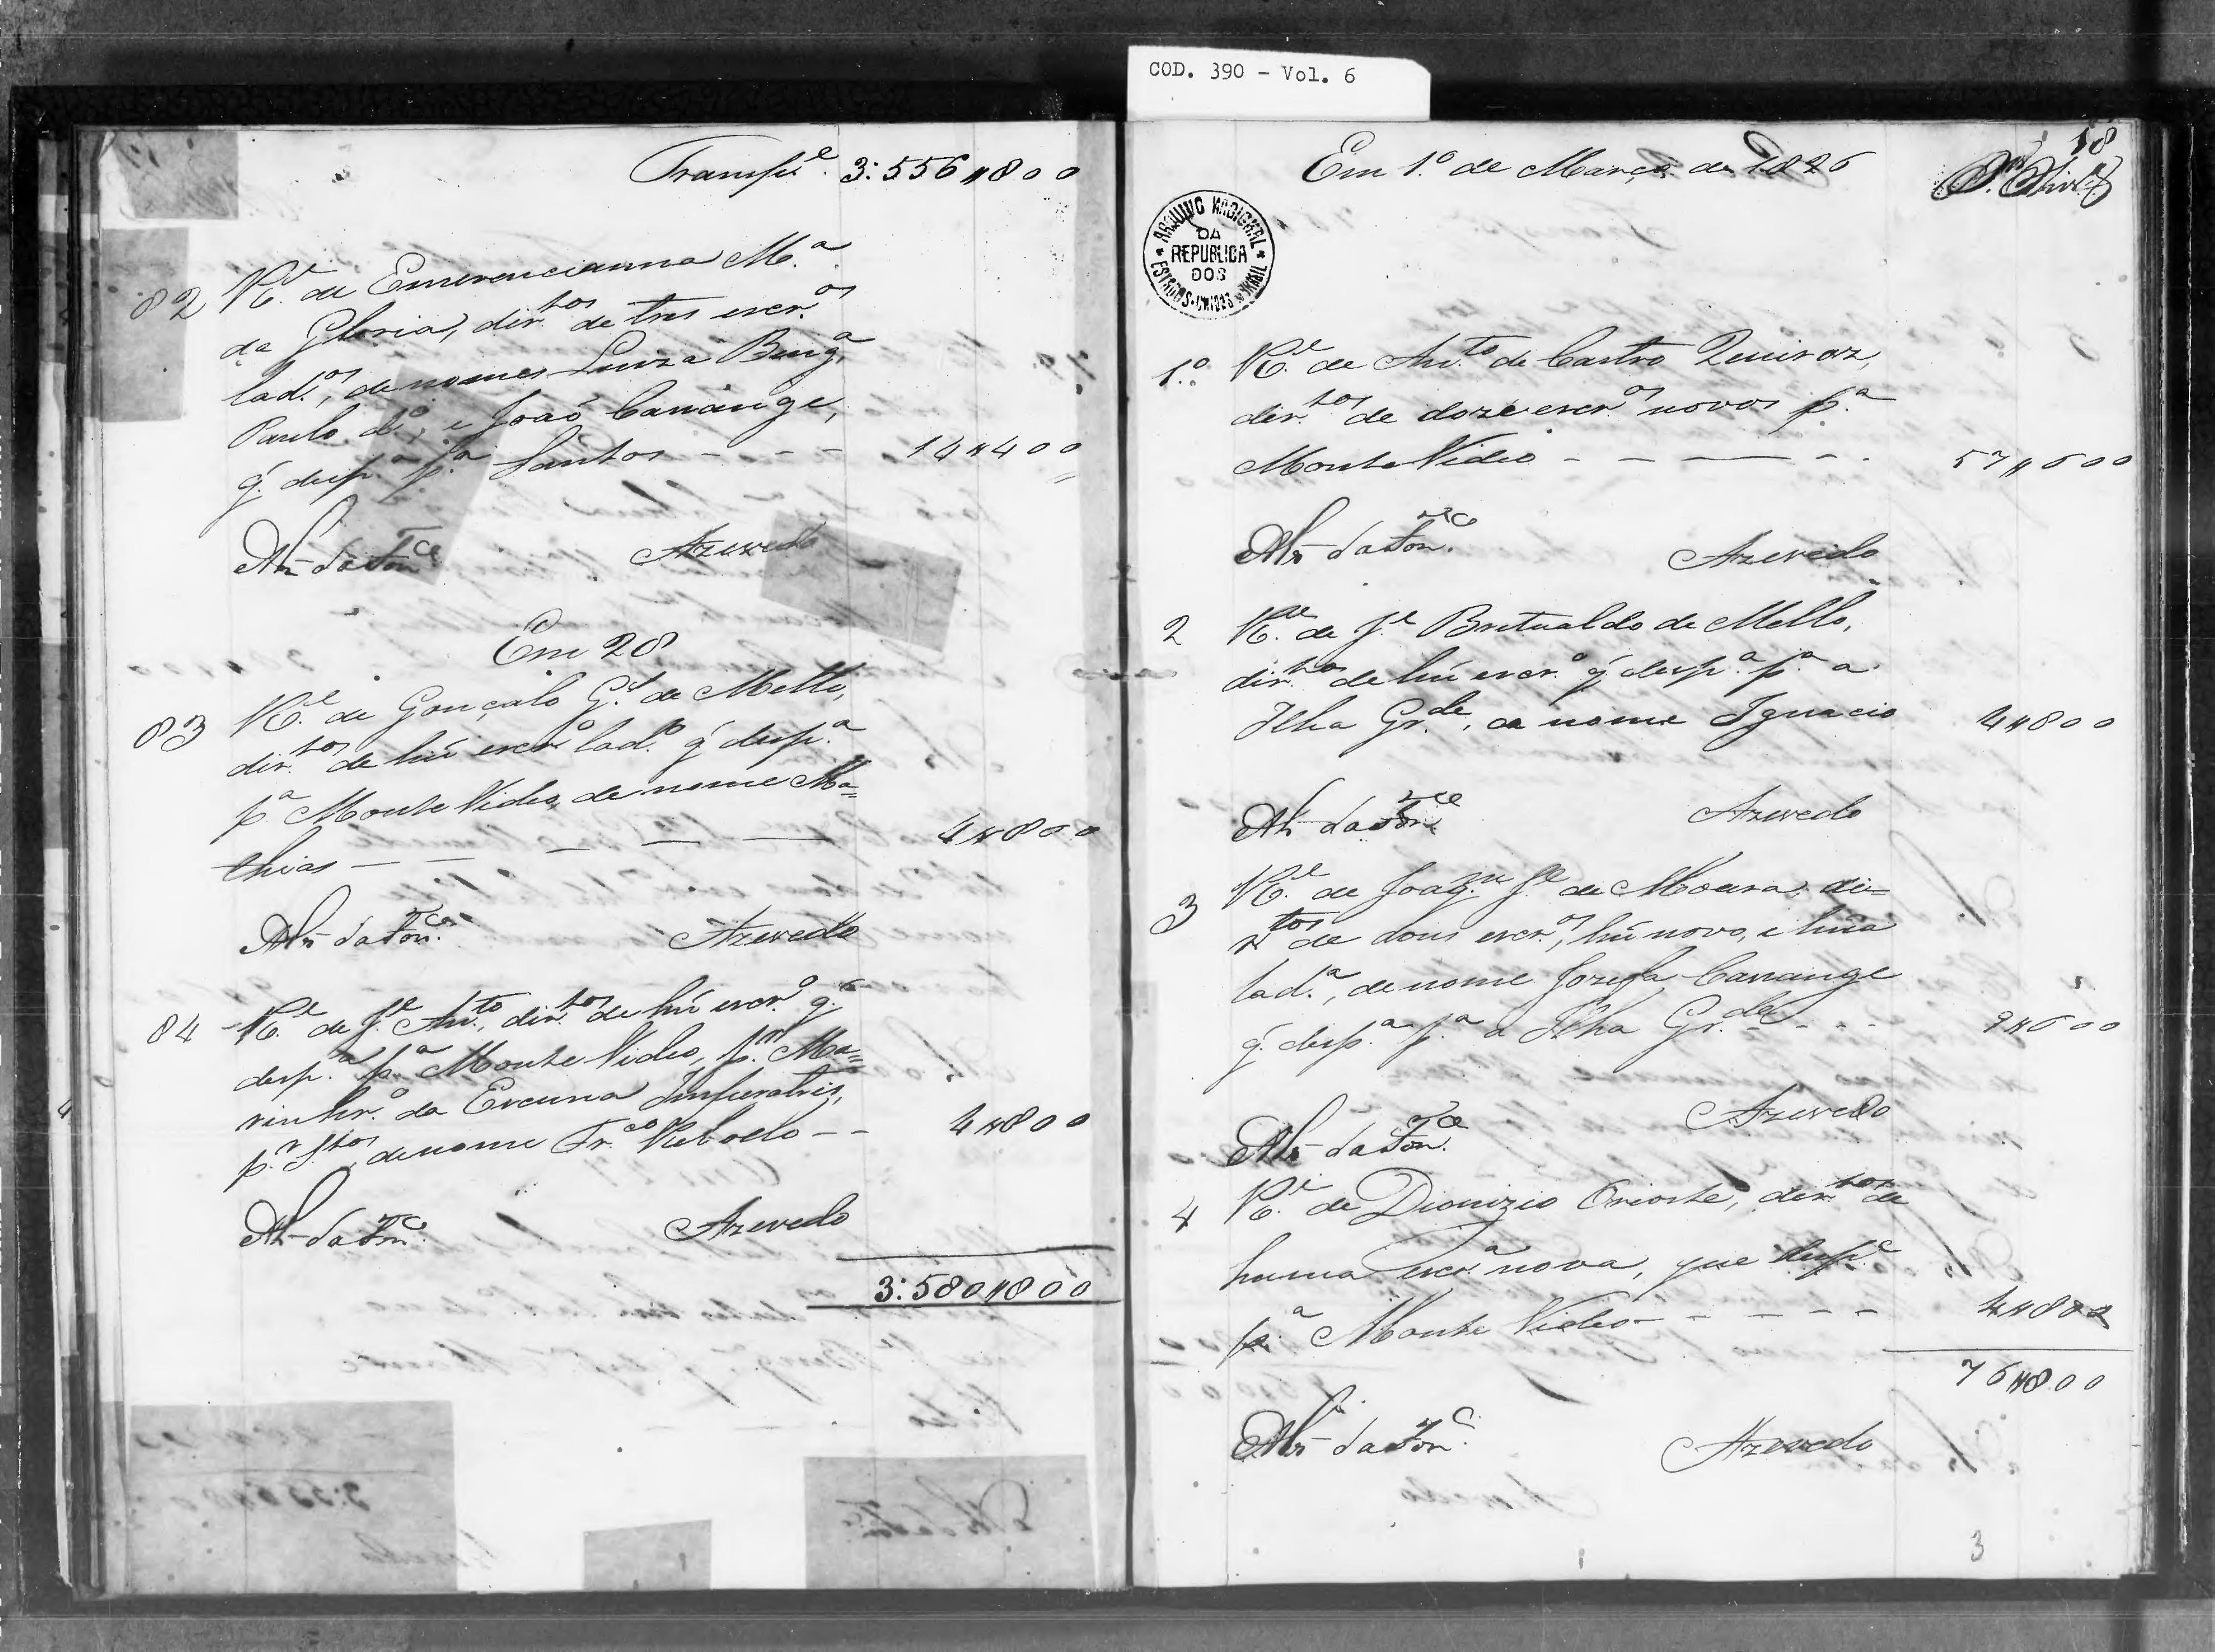 COD. 390 - Vol. 6
Transp.e 3:556〃800
82 R.e de Emerencianna M.a
da Gloria, dir.tos de tres escr.os
lad.os, de nomes Luiza Beng.a
Paulo d.o, e João Cassange,
q̃ desp.a p.a Santos - - - 14〃400
Azevedo
Em 28
83 R.e de Gonçalo G.s de Mello,
dir.tos de hũ escr.o lad.o q̃ desp.a
p.a Monte Video, de nome Ma=
thias — — — — — 4〃800
Azevedo
84 R.e de J.e Ant.o, dir.tos de hũ escr.o q.
desp.a p.a Monte Video, p.r Ma=
rinhr.o da Escuna Imperatris,
de nome Fr.co Rebolo - - 4〃800
Azevedo
3:580〃800
18
Em 1.o de Março de 1826
ARQUIVO NACIONAL
DA
REPUBLICA
DOS
ESTADOS-UNIDOS DO BRAZIL
1.o R.e de Ant.o de Castro Quiroz,
dir.tos de doze escr.os novos p.a
Monte Video - - - - - 57〃600
Azevedo
2 R.e de J.e Bretualdo de Mello,
dir.tos de hũ escr.o q̃ desp.a p.a a
Ilha Gr.de, de nome Ignacio 4〃800
Azevedo
3 R.e de Joaq.m J.e de Moura, di=
r.tos de dous escr.os, hũ novo, e hũa
lad.a, de nome Jozefa Cassange
q̃ desp.a p.a a Ilha Gr.de - - - 9〃600
Azevedo
4 R.e de Dionizio Orioste, dir.tos de
huma escr.a nova, que desp.e
p.a Monte Video - - - - 4〃800
76〃800
Azevedo
3